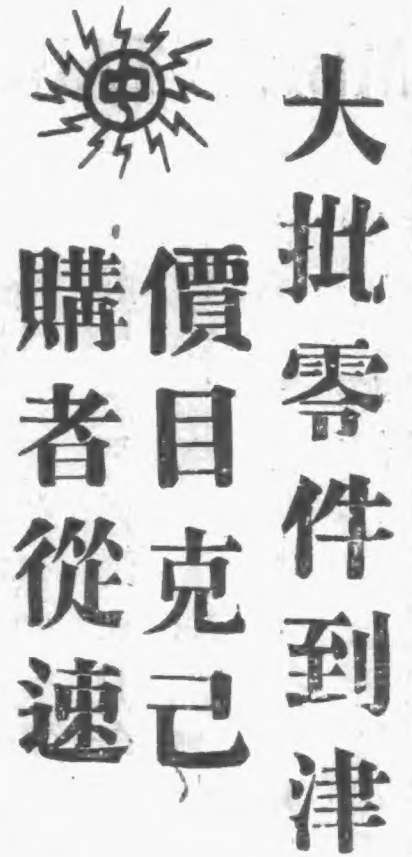 大批零件到津
價目克己
購者從速